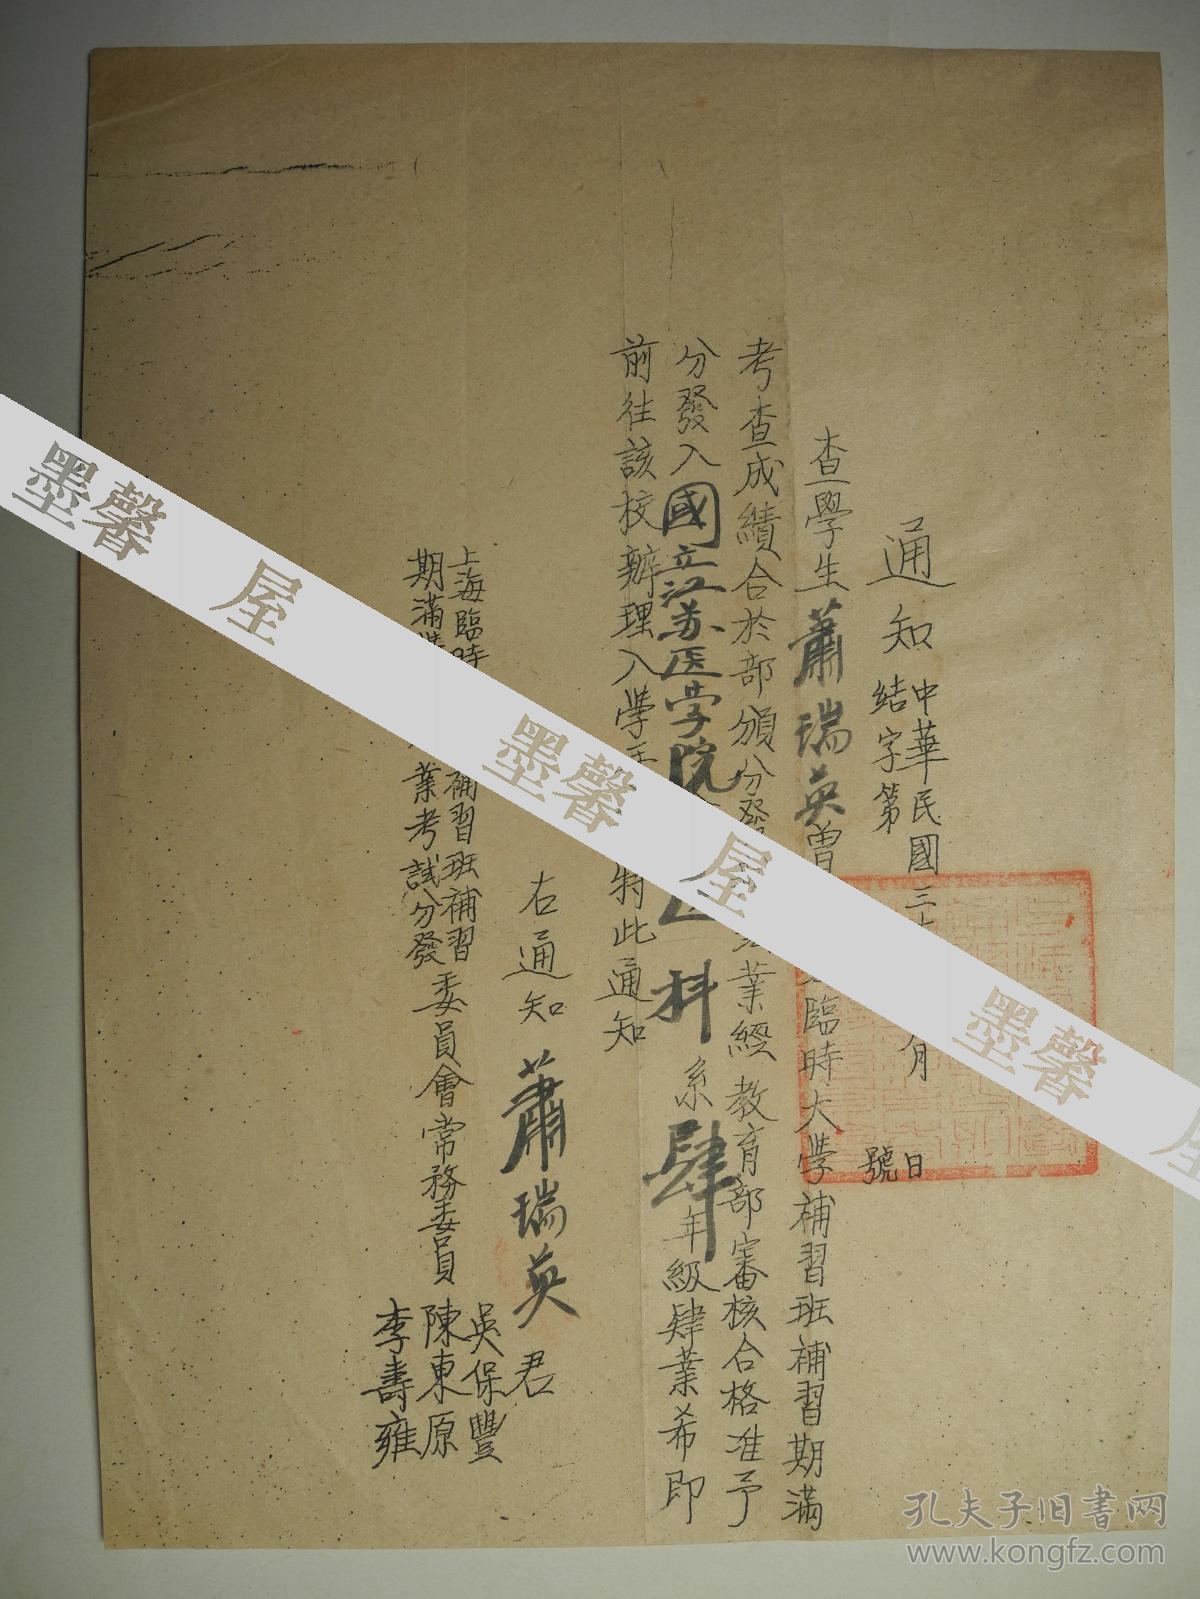 通知
中華民國三 月 日
結字第 號
查學生蕭瑞英曾 臨時大學補習班補習期滿
考查成績合於部頒分發 業經教育部審核合格准予
分發入國立江苏医学院 科系肆年級肄業希即
前往該校辦理入學 特此通知
右通知 蕭瑞英君
上海臨時 補習班補習
期滿 業考試分發
委員會常務委員
吳保豐
陳東原
李壽雍
墨馨 屋
墨馨 屋
墨馨 屋
孔夫子旧書网
www.kongfz.com